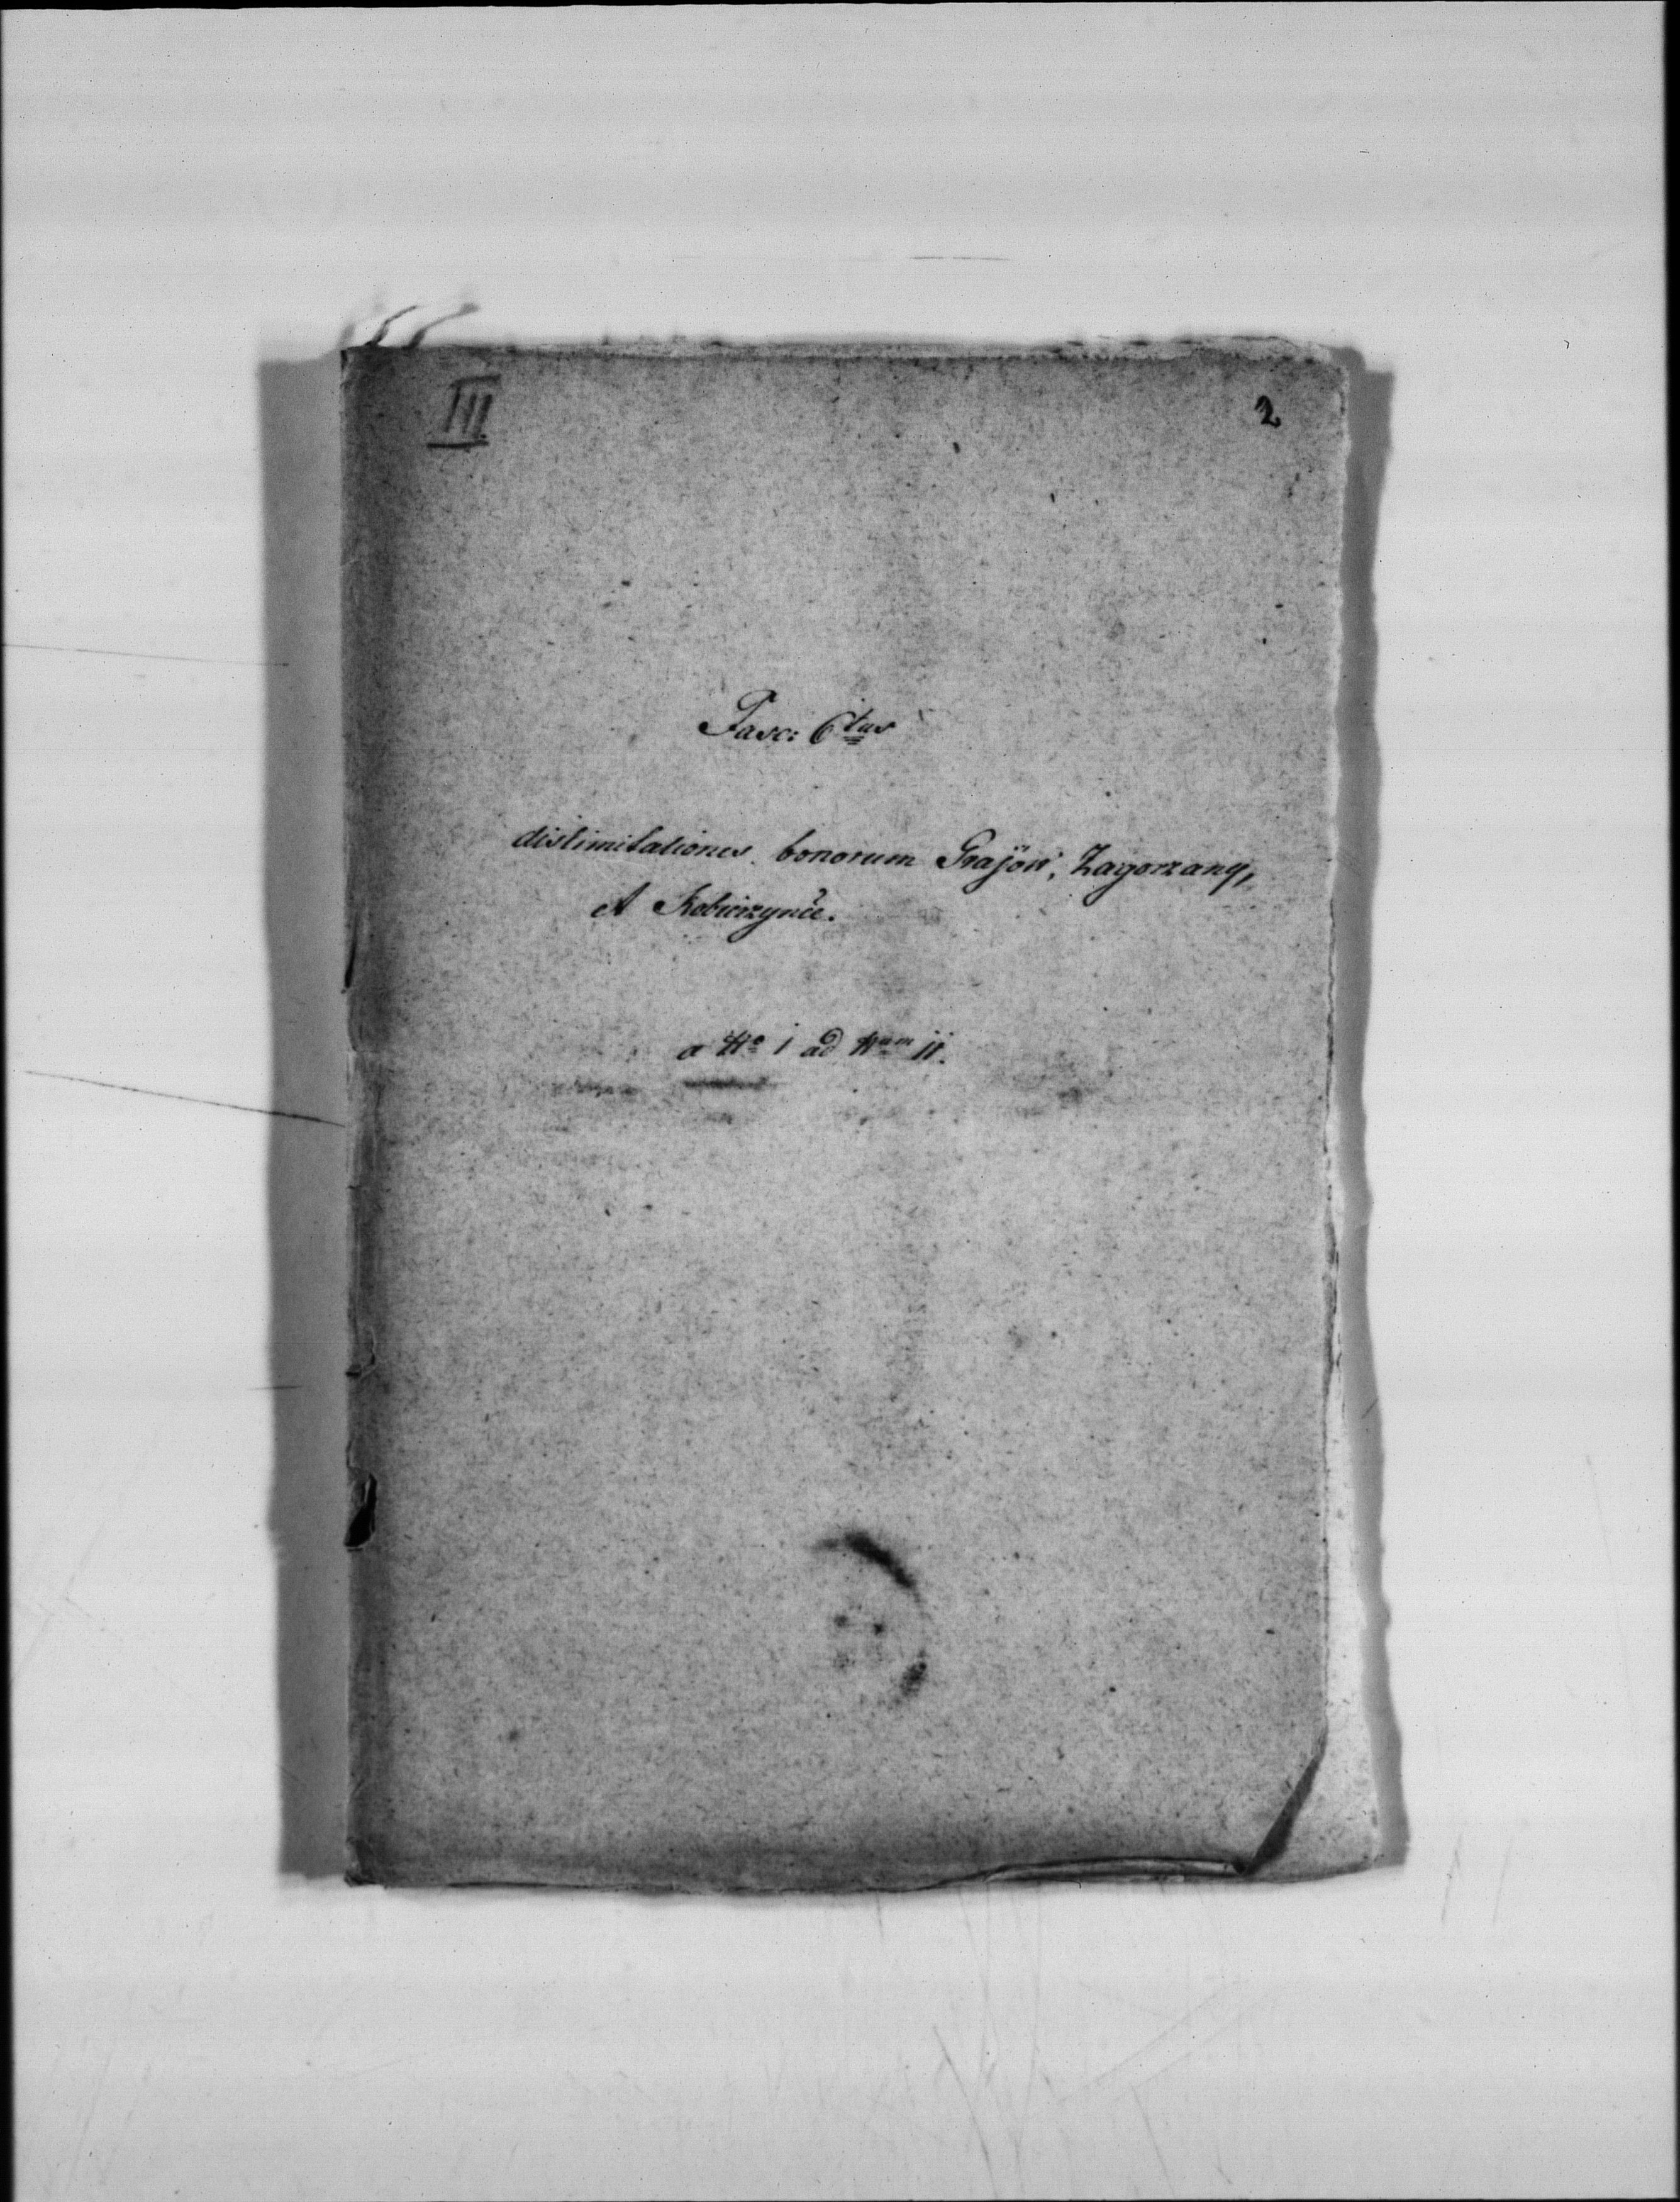 III.
2
Fasc: 6tus
dislimitationes bonorum Grajów, Zagorzany,
et Kobierzynce.
a No 1 ad Num 11.